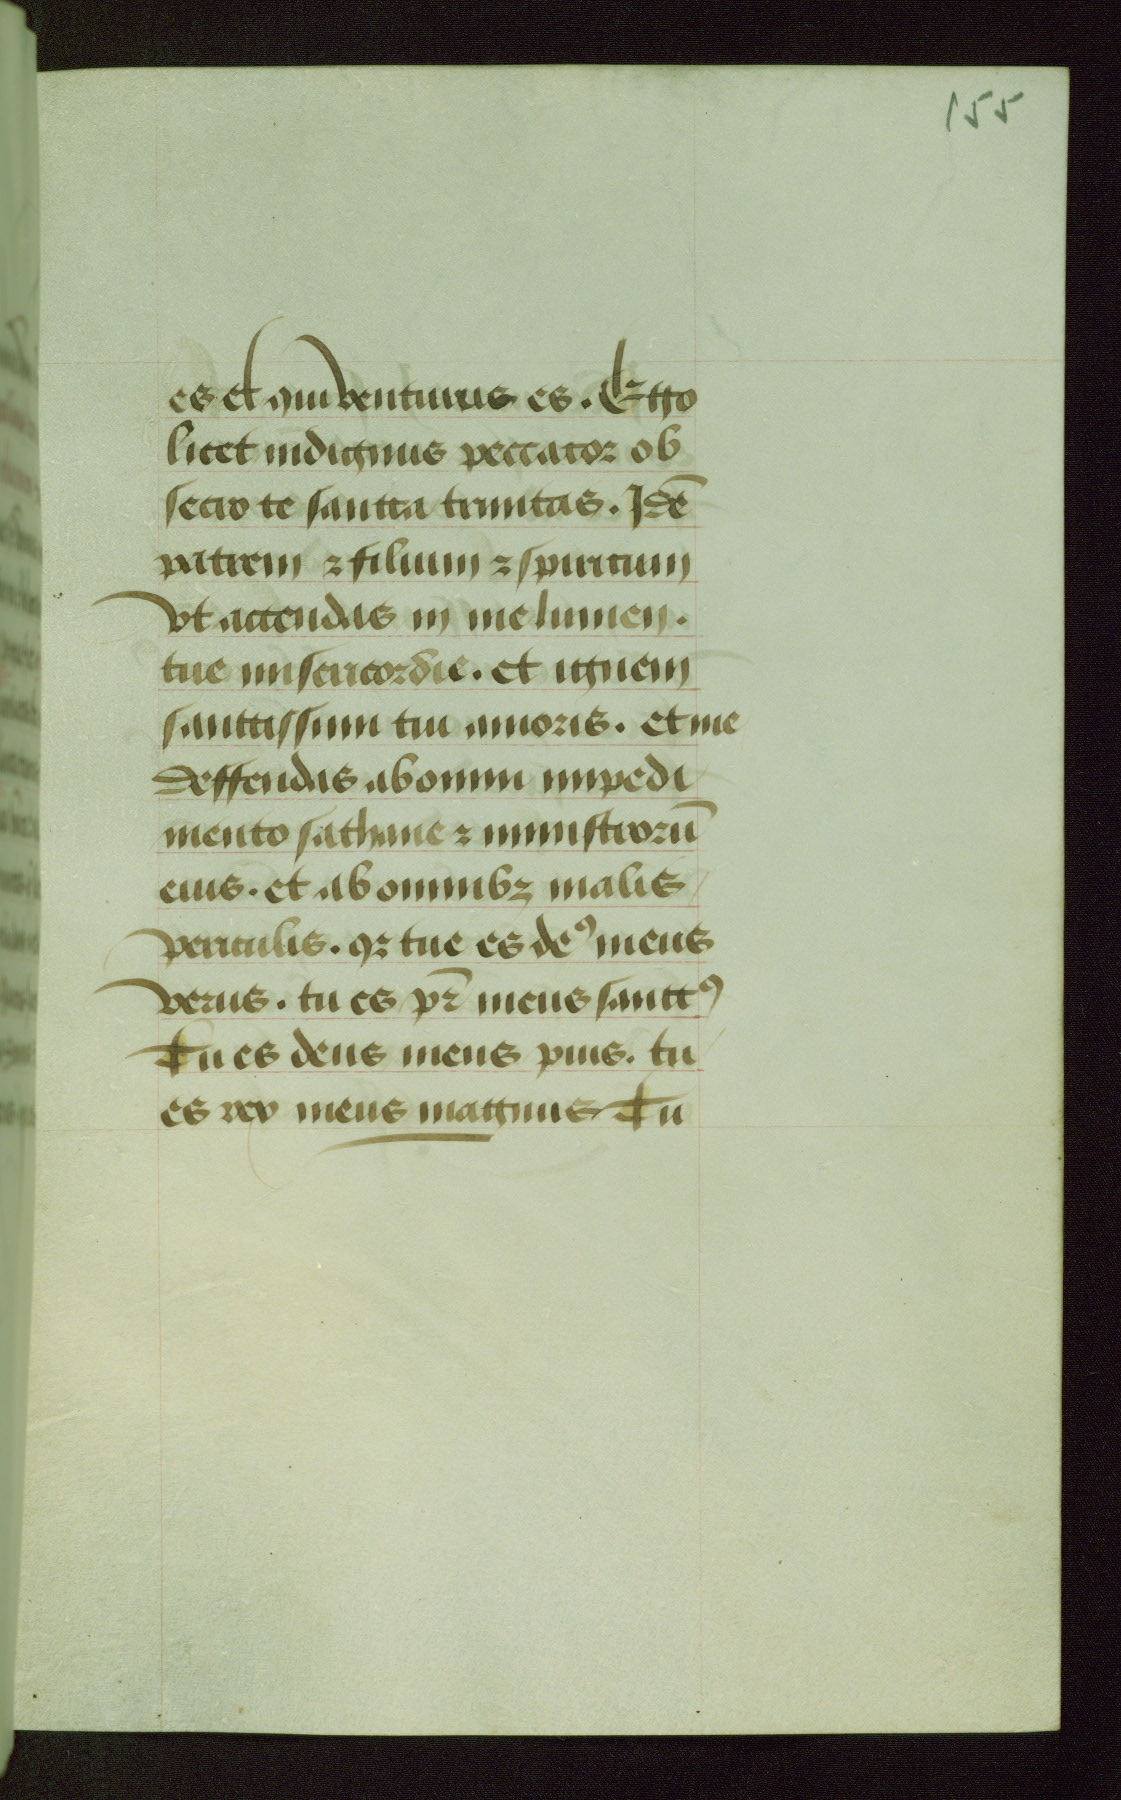 155
es et qui venturus es. Ego
licet indignus peccator ob
secro te sancta trinitas. Idē
patrem ⁊ filium ⁊ spiritum
vt accendas in me lumen.
tue misericordie. et ignem
sanctissimi tui amoris. et me
deffendas ab omni impedi
mento sathane ⁊ ministrorū
eius. et ab omnibꝫ malis
periculis. qꝛ tue es deꝰ meus
verus. tu es pr̄ meus sanctꝰ
Tu es deus meus pius. tu
es rex meus magnus Tu